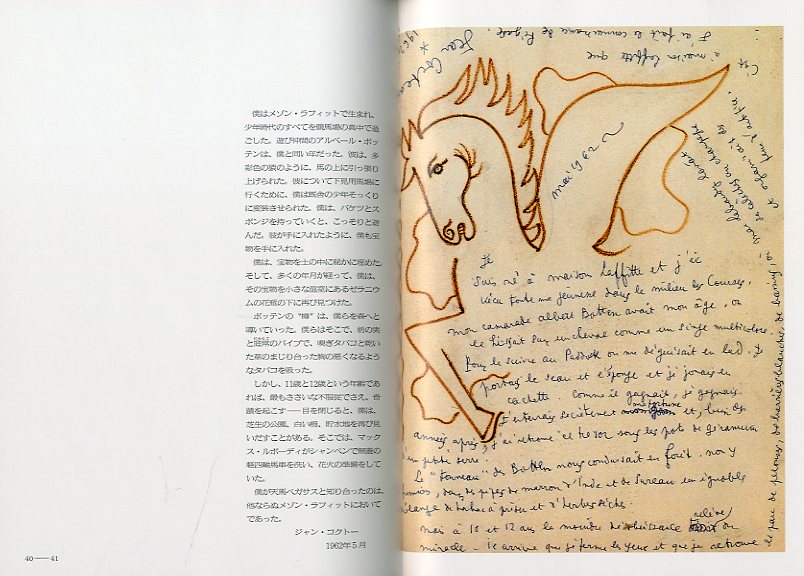 僕はメゾン・ラフィットで生まれ、
少年時代のすべてを競馬場の真中で過
ごした。遊び仲間のアルベール・ボッ
テンは、僕と同い年だった。彼は、多
彩色の猿のように、馬の上に引っ張り
上げられた。彼について下見用馬場に
行くために、僕は厩舎の少年そっくり
に変装させられた。僕は、バケツとス
ポンジを持っていくと、こっそりと遊
んだ。彼が手に入れたように、僕も宝
物を手に入れた。
僕は、宝物を土の中に秘かに埋めた。
そして、多くの年月が経って、僕は、
その宝物を小さな温室にあるゼラニウ
ムの花瓶の下に再び見つけた。
ボッテンの〝樽〟は、僕らを森へと
導いていった。僕らはそこで、栃の実
と庭常のパイプで、嗅ぎタバコと乾い
た草のまじり合った胸の悪くなるよう
なタバコを吸った。
しかし、11歳と12歳という年齢であ
れば、最もささいな不服従でさえ、奇
蹟を起こす──目を閉じると、僕は、
芝生の公園、白い柵、貯水池を再び見
いだすことがある。そこでは、マック
ス・ルボーディがシャンペンで無蓋の
軽四輪馬車を洗い、花火の準備をして
いた。
僕が天馬ペガサスと知り合ったのは、
他ならぬメゾン・ラフィットにおいて
であった。
ジャン・コクトー
1962年5月
40──41
Jean Cocteau
* 1962
C'est
à maison Laffitte que
j'ai fait la connaissance de Pégase.
mai 1962
Je
suis né à maison Laffitte et j'ai
vécu toute ma jeunesse dans le milieu des Courses.
mon camarade albert Botten avait mon âge. on
le hissait sur un cheval comme un singe multicolore.
Pour le suivre au Paddock on me déguisait en lad. Je
portais le seau et l'éponge et je jouais en
cachette. Comme il gagnait, je gagnais.
J'enterrais secrètement et, bien des
années après, j'ai retrouvé ce trésor sous les pots de géranium
d'une petite serre.
Le "Tonneau" des Botten nous conduisait en forêt. nous y
fumions, dans des pipes de marron d'Inde et de Sureau un ignoble
mélange de tabac à priser et d'herbes sèches.
mais à 10 et 12 ans la moindre désobéissance
miracle - il arrive que je ferme les yeux et que je retrouve
le parc de pelouses, de barrières blanches, de